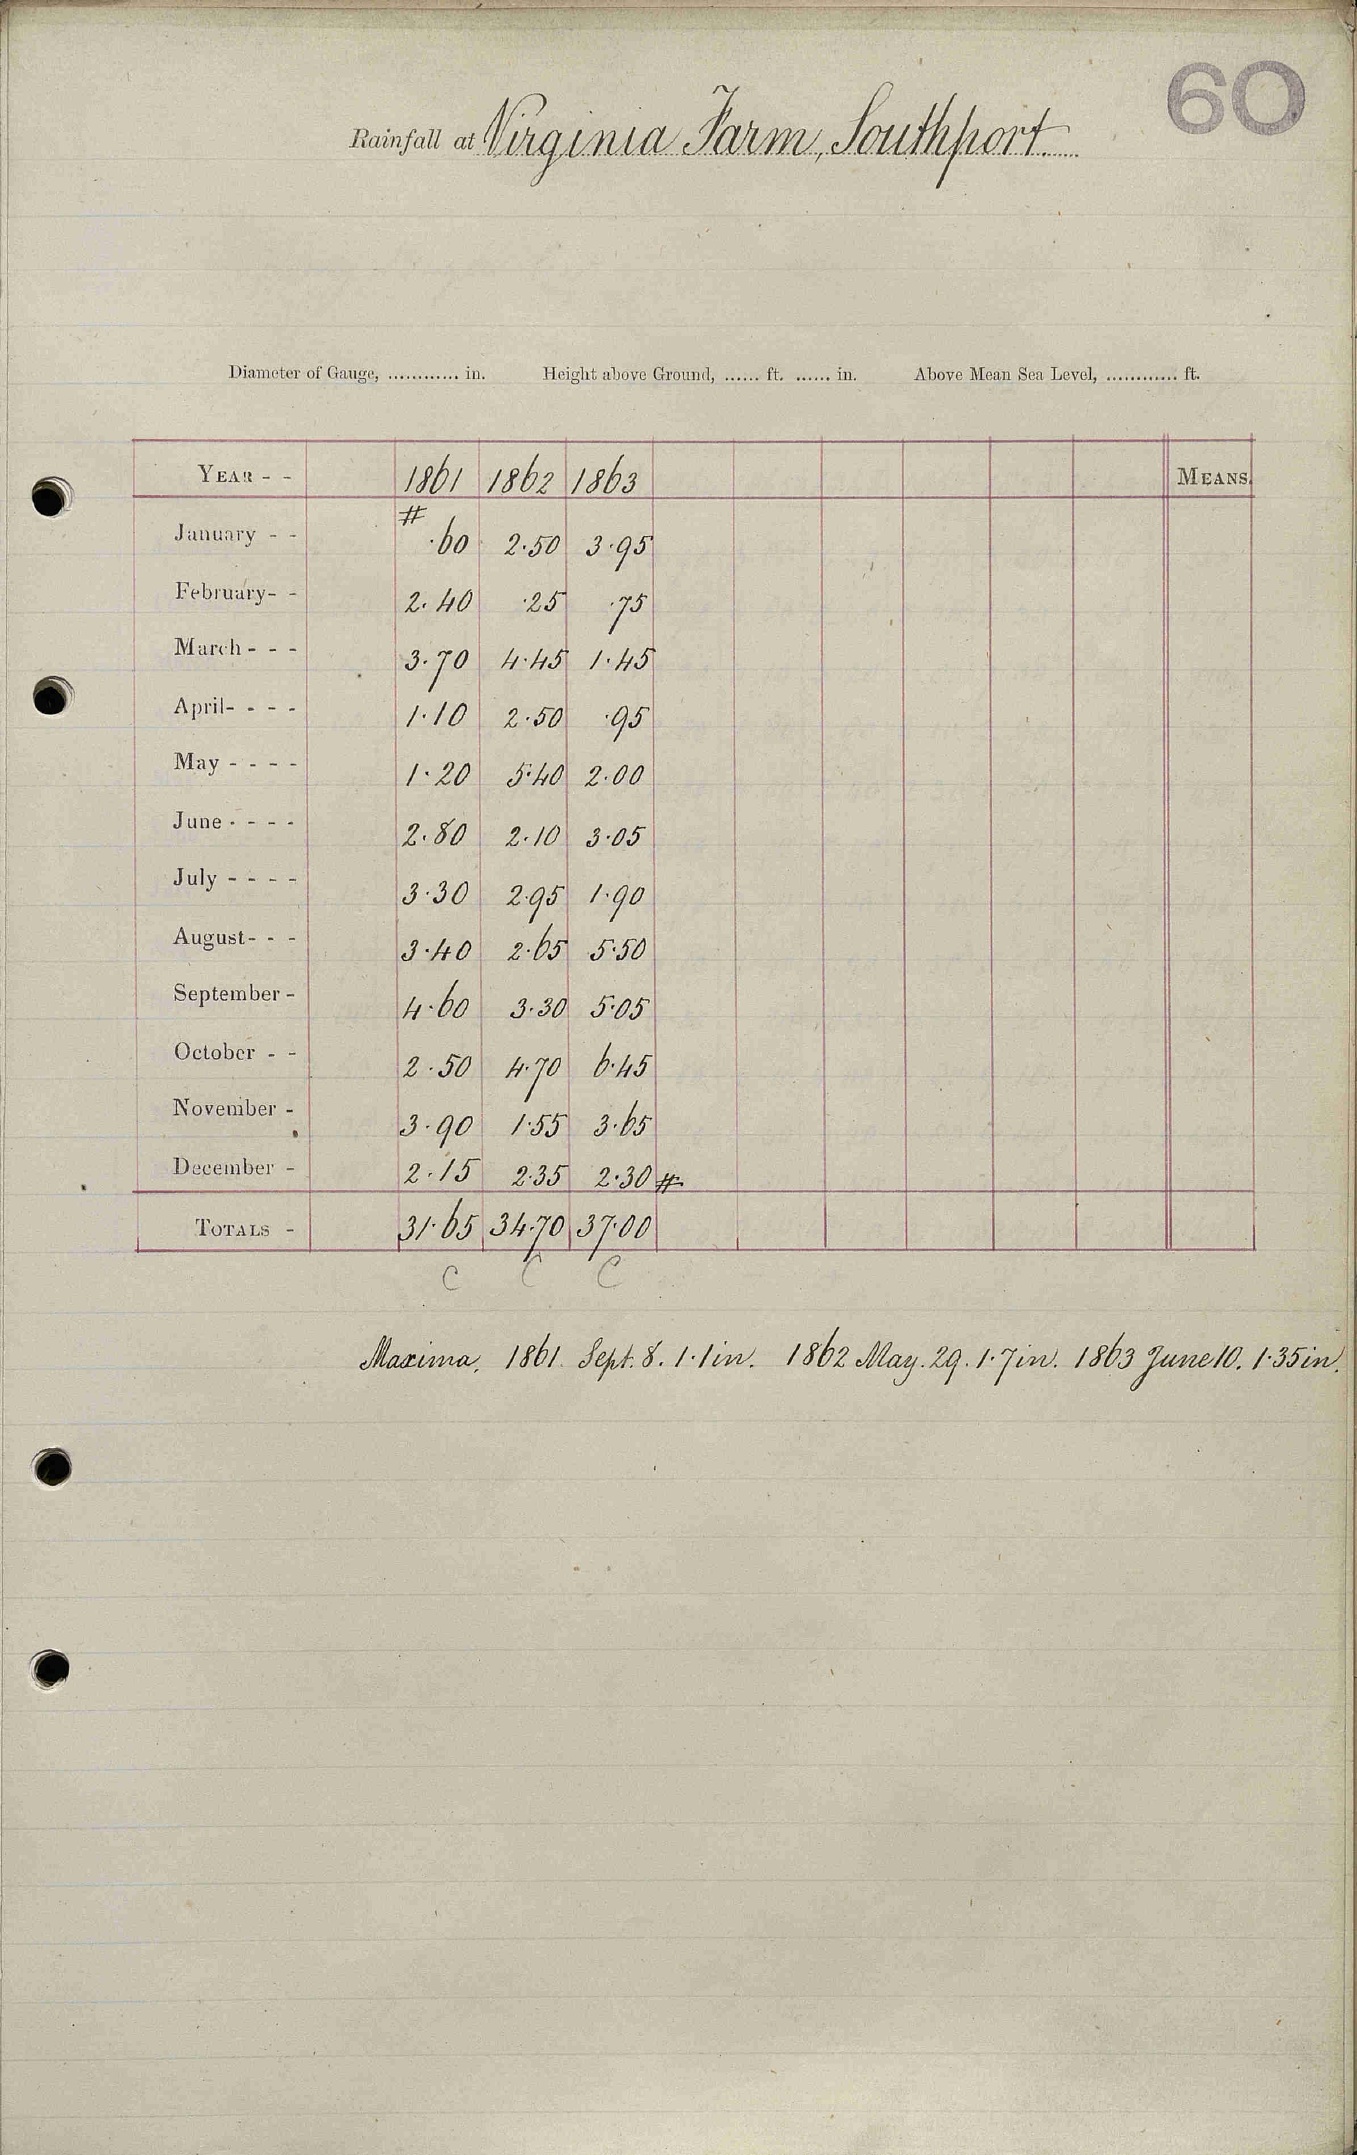 60
Rainfall at Virginia Farm, Southport.
Diameter of Gauge, ............ in. Height above Ground, ...... ft. ...... in. Above Mean Sea Level, ............ ft.
YEAR - - 1861 1862 1863 MEANS.
#
January - - ·60 2·50 3·95
February- - 2·40 ·25 ·75
March - - - 3·70 4·45 1·45
April- - - - 1·10 2·50 ·95
May - - - - 1·20 5·40 2·00
June - - - - 2·80 2·10 3·05
July - - - - 3·30 2·95 1·90
August- - - 3·40 2·65 5·50
September - 4·60 3·30 5·05
October - - 2·50 4·70 6·45
November - 3·90 1·55 3·65
December - 2·15 2·35 2·30 #
TOTALS - 31·65 34·70 37·00
C C C
Maxima, 1861 Sept. 8. 1·1in. 1862 May. 29. 1·7in. 1863 June 10. 1·35in.